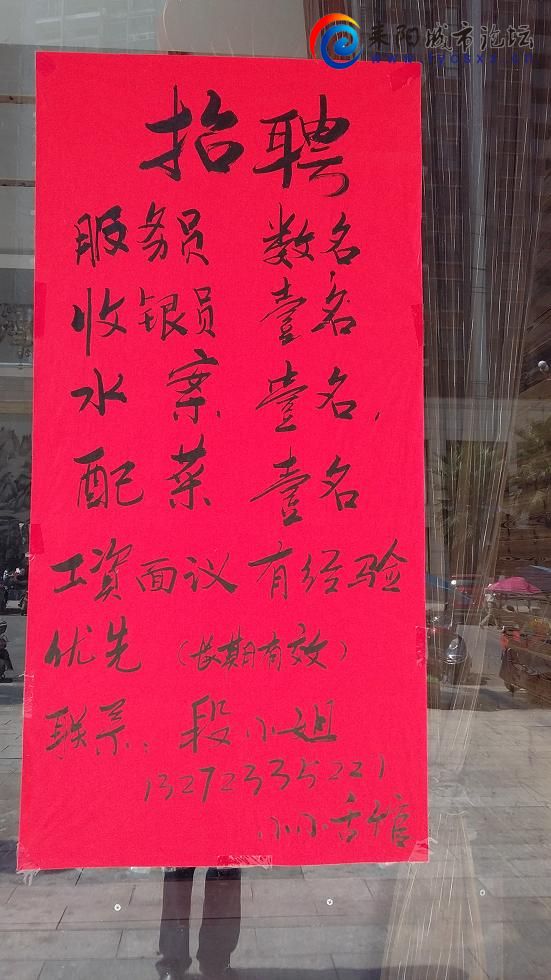 耒阳城市论坛
招聘
服务员 数名
收银员 壹名
水案 壹名,
配菜 壹名
工資面议有经验
优先（长期有效）
联系：段小姐
13272335221
小小舌馆